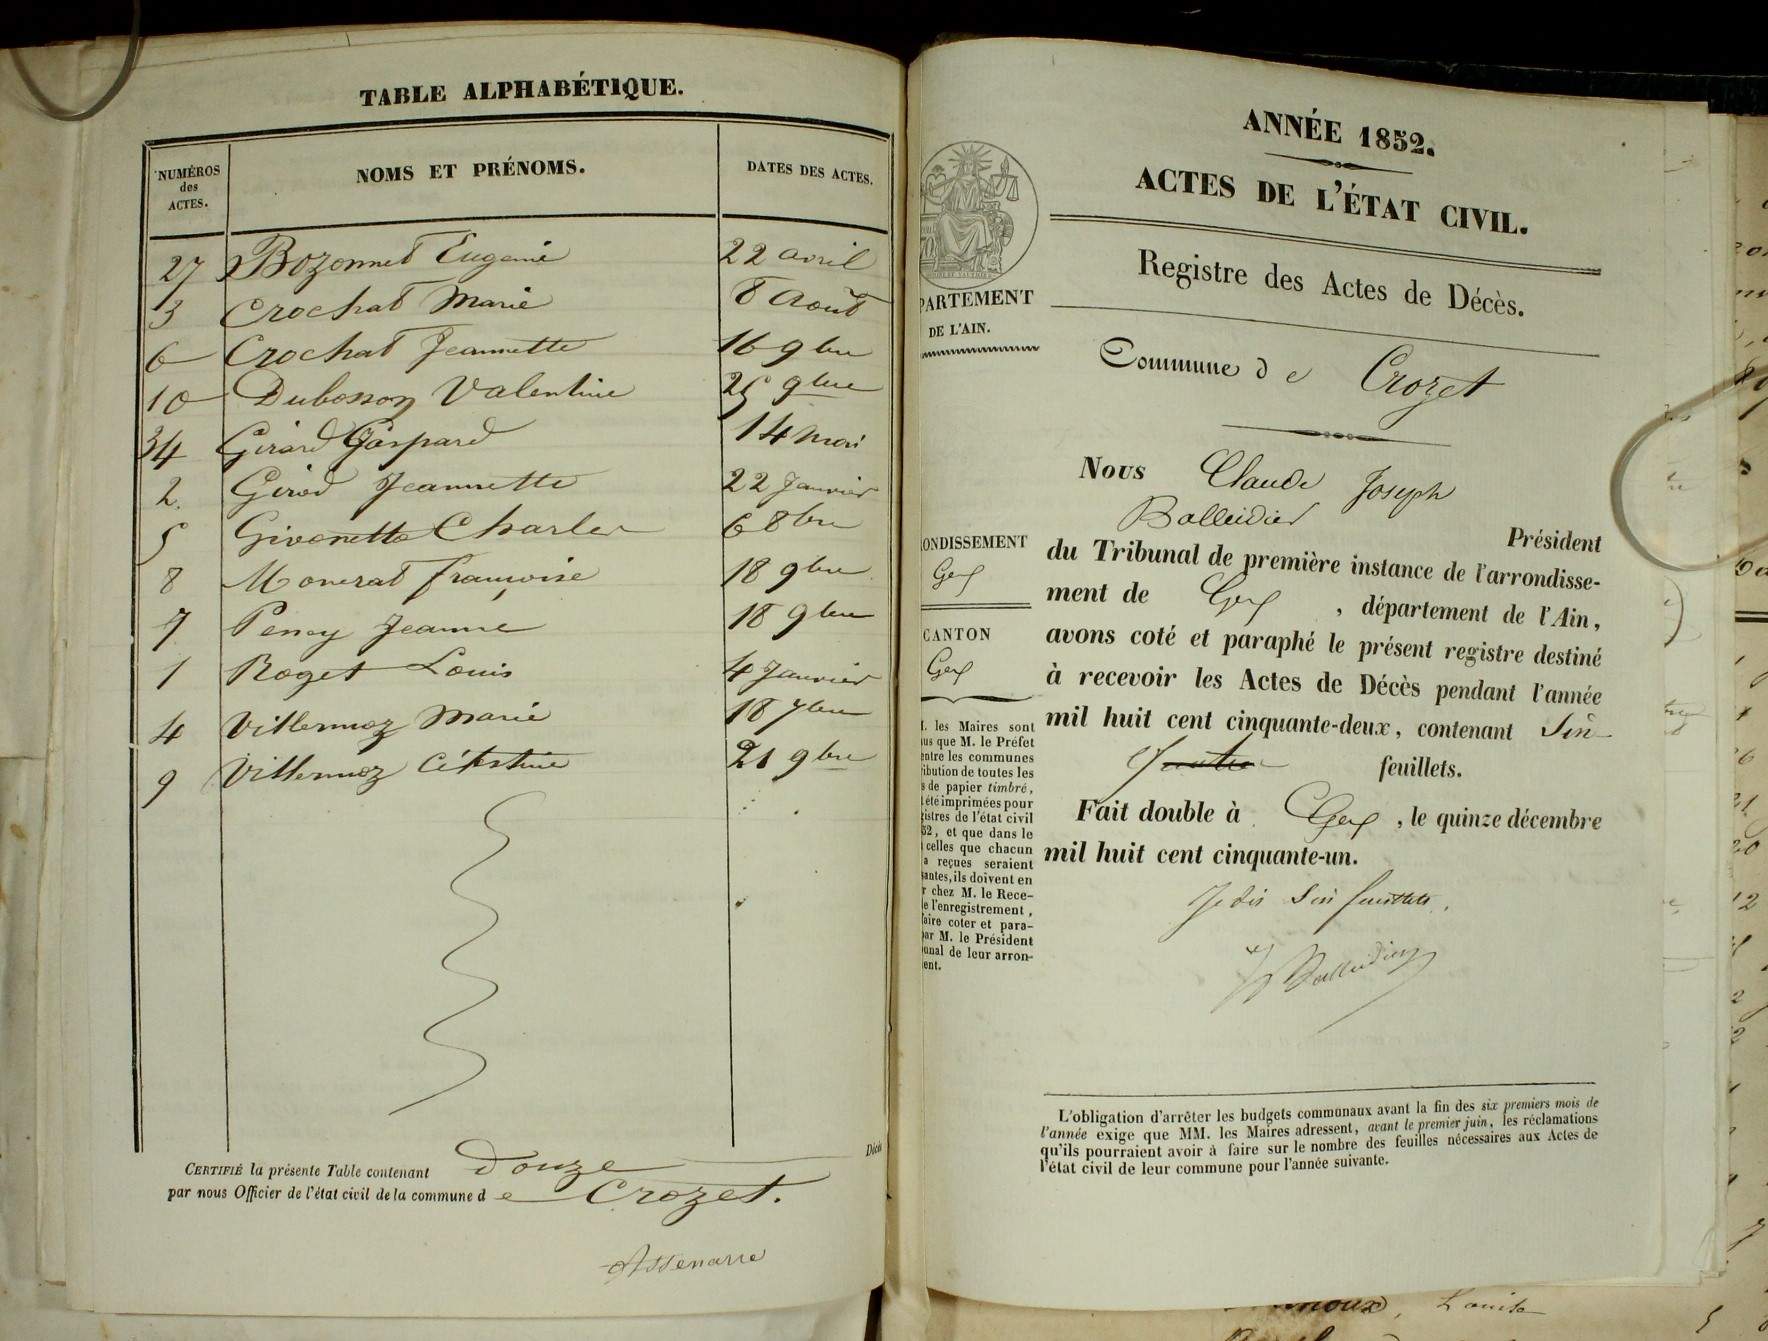 TABLE ALPHABÉTIQUE.
NUMÉROS des ACTES. NOMS ET PRÉNOMS. DATES DES ACTES.
27 Bozonnet Eugenie 22 avril
3 Crochat Marie 8 Août
6 Crochat Jeannette 16 9bre
10 Dubosson Valentine 25 9bre
34 Girard Gaspard 14 mai
2. Girod Jeannette 22 Janvier
5 Givonette Charles 6 8bre
8 Monerat françoise 18 9bre
7 Peney Jeanne 18 9bre
1 Roget Louis 4 Janvier
4 Villermoz Marie 18 7bre
9 Villermoz Célestine 21 9bre
Décès
CERTIFIÉ la présente Table contenant Douze
par nous Officier de l'état civil de la commune de Crozet.
ANNÉE 1852.
ACTES DE L'ÉTAT CIVIL.
Registre des Actes de Décès.
PARTEMENT
DE L'AIN.
Commune de Crozet
Nous Claude Joseph
Balleidier
Président
du Tribunal de première instance de l'arrondisse-
ment de Gex, département de l'Ain,
avons coté et paraphé le présent registre destiné
à recevoir les Actes de Décès pendant l'année
mil huit cent cinquante-deux, contenant Six
feuillets.
Fait double à Gex, le quinze décembre
mil huit cent cinquante-un.
Je dis Six feuillets.
Balleidier
ONDISSEMENT
Gex
CANTON
Gex
. les Maires sont
us que M. le Préfet
entre les communes
ibution de toutes les
s de papier timbré,
t été imprimées pour
gistres de l'état civil
52, et que dans le
celles que chacun
a reçues seraient
santes, ils doivent en
r chez M. le Rece-
e l'enregistrement,
aire coter et para-
par M. le Président
unal de leur arron-
ent.
L'obligation d'arrêter les budgets communaux avant la fin des six premiers mois de
l'année exige que MM. les Maires adressent, avant le premier juin, les réclamations
qu'ils pourraient avoir à faire sur le nombre des feuilles nécessaires aux Actes de
l'état civil de leur commune pour l'année suivante.